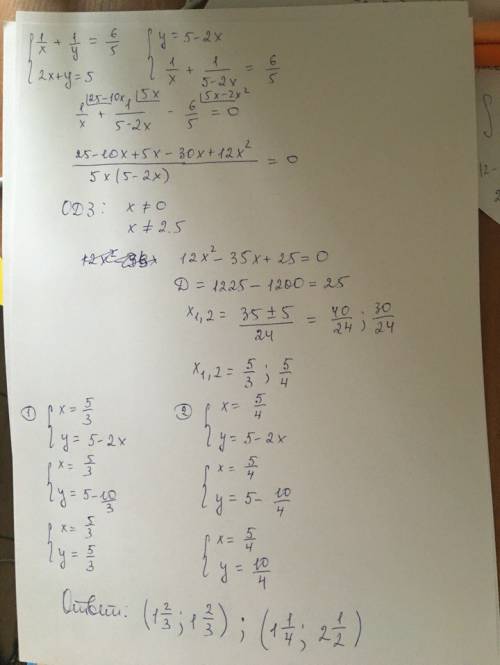 { 1/x + 1/y = 6/5   { y = 5 - 2x
{ 2x + y = 5   { 1/x + 1/(5-2x) = 6/5
1/x |25-10x + 1/(5-2x) |5x - 6/5 |5x-2x² = 0
(25-10x+5x-30x+12x²)/(5x(5-2x)) = 0
ОДЗ: x ≠ 0
x ≠ 2.5
12x² - 35x + 25 = 0
D = 1225 - 1200 = 25
x₁,₂ = (35 ± 5)/24 = 40/24 ; 30/24
x₁,₂ = 5/3 ; 5/4
① { x = 5/3   ② { x = 5/4
{ y = 5 - 2x   { y = 5 - 2x
{ x = 5/3   { x = 5/4
{ y = 5 - 10/3   { y = 5 - 10/4
{ x = 5/3   { x = 5/4
{ y = 5/3   { y = 10/4
Ответ: (1 2/3 ; 1 2/3) ; (1 1/4 ; 2 1/2)